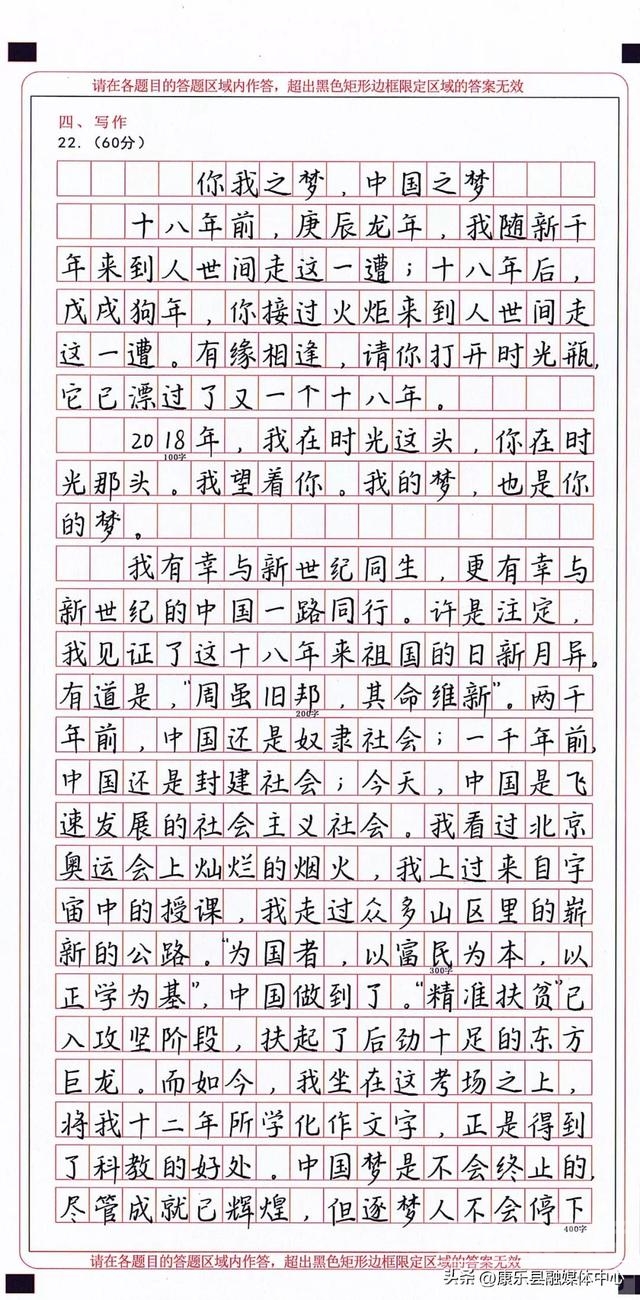 请在各题目的答题区域内作答，超出黑色矩形边框限定区域的答案无效
四、写作
22.（60分）
你我之梦，中国之梦
十八年前，庚辰龙年，我随新千
年来到人世间走这一遭；十八年后，
戊戌狗年，你接过火炬来到人世间走
这一遭。有缘相逢，请你打开时光瓶，
它已漂过了又一个十八年。
2018年，我在时光这头，你在时
100字
光那头。我望着你。我的梦，也是你
的梦。
我有幸与新世纪同生，更有幸与
新世纪的中国一路同行。许是注定，
我见证了这十八年来祖国的日新月异。
有道是，“周虽旧邦，其命维新”。两千
200字
年前，中国还是奴隶社会；一千年前，
中国还是封建社会；今天，中国是飞
速发展的社会主义社会。我看过北京
奥运会上灿烂的烟火，我上过来自宇
宙中的授课，我走过众多山区里的崭
新的公路。“为国者，以富民为本，以
300字
正学为基”，中国做到了。“精准扶贫”已
入攻坚阶段，扶起了后劲十足的东方
巨龙。而如今，我坐在这考场之上，
将我十二年所学化作文字，正是得到
了科教的好处。中国梦是不会终止的，
尽管成就已辉煌，但逐梦人不会停下
400字
请在各题目的答题区域内作答，超出黑色矩形边框限定区域的答案无效
头条 @康乐县融媒体中心